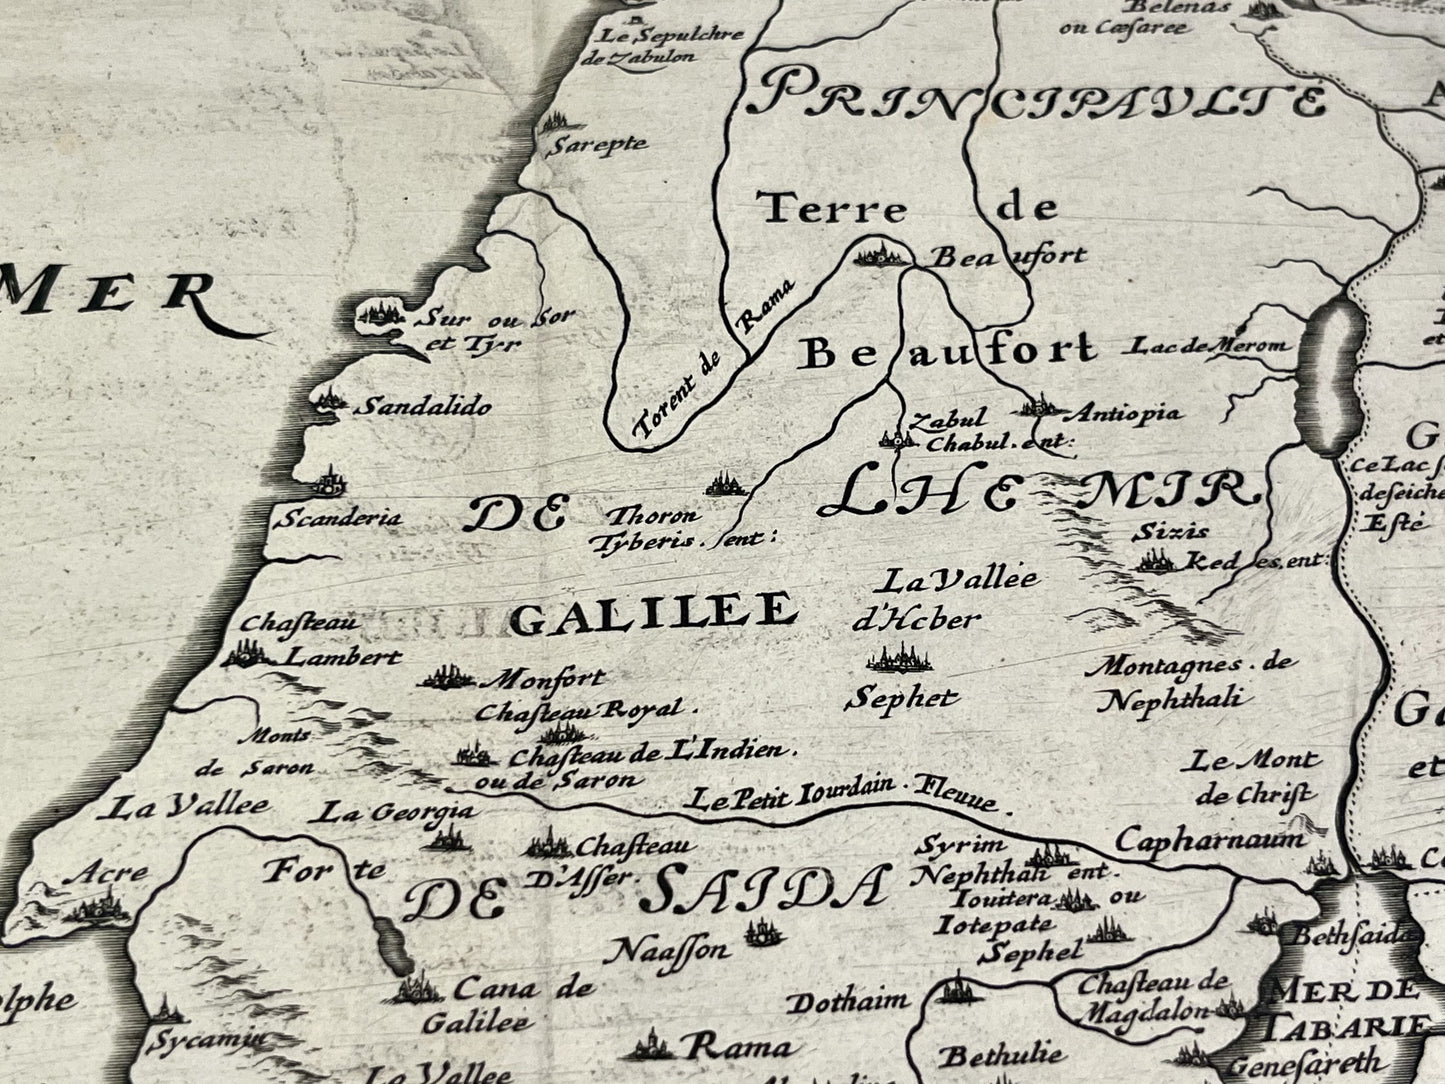 Belenas
ou Cæsaree
Le Sepulchre
de Zabulon
PRINCIPAVLTÉ
Sarepte
Terre de
Beaufort
MER
Torent de Rama
Sur ou Sor
et Tyr
Beaufort
Lac de Merom
Sandalido
Zabul
Chabul. ent:
Antiopia
Ce Lac ſ
deſeiche
Eſté
Scanderia
DE
Thoron
Tyberis. ſent:
LHE MIR
Sizis
Kedes. ent:
GALILEE
La Vallée
d'Heber
Chaſteau
Lambert
Monfort
Chaſteau Royal.
Sephet
Montagnes. de
Nephthali
Monts
de Saron
Chaſteau de L'Indien.
ou de Saron
Le Mont
de Chriſt
La Vallee
La Georgia
Le Petit Iourdain. Fleuue.
Capharnaum
Acre
Forte
Chaſteau
D'Aſſer.
DE SAIDA
Syrim
Nephthali ent.
Iouitera ou
Iotepate
Sephel
Naaſſon
Bethſaida
Cana de
Galilee
Dothaim
Chaſteau de
Magdalon
MER DE
TABARIE
Sycamin
Rama
Bethulie
Geneſareth
La Vallee